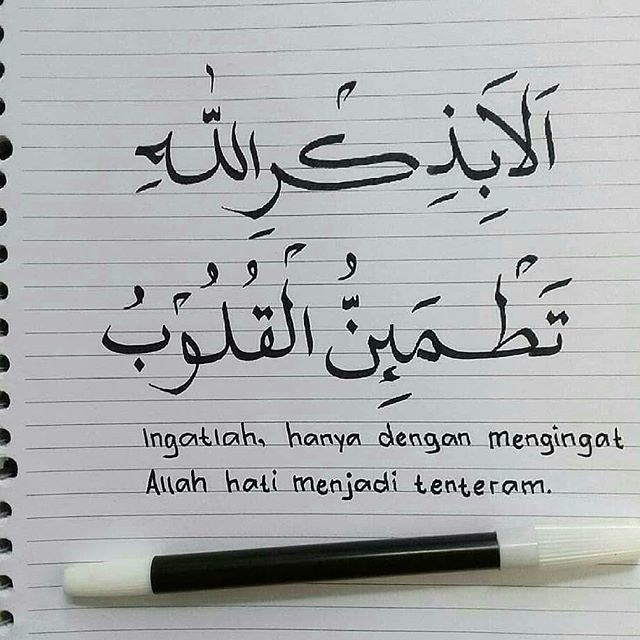 اَلَا بِذِكْرِ اللّٰهِ
تَطْمَىِٕنُّ الْقُلُوْبُ
Ingatlah, hanya dengan mengingat
Allah hati menjadi tenteram.